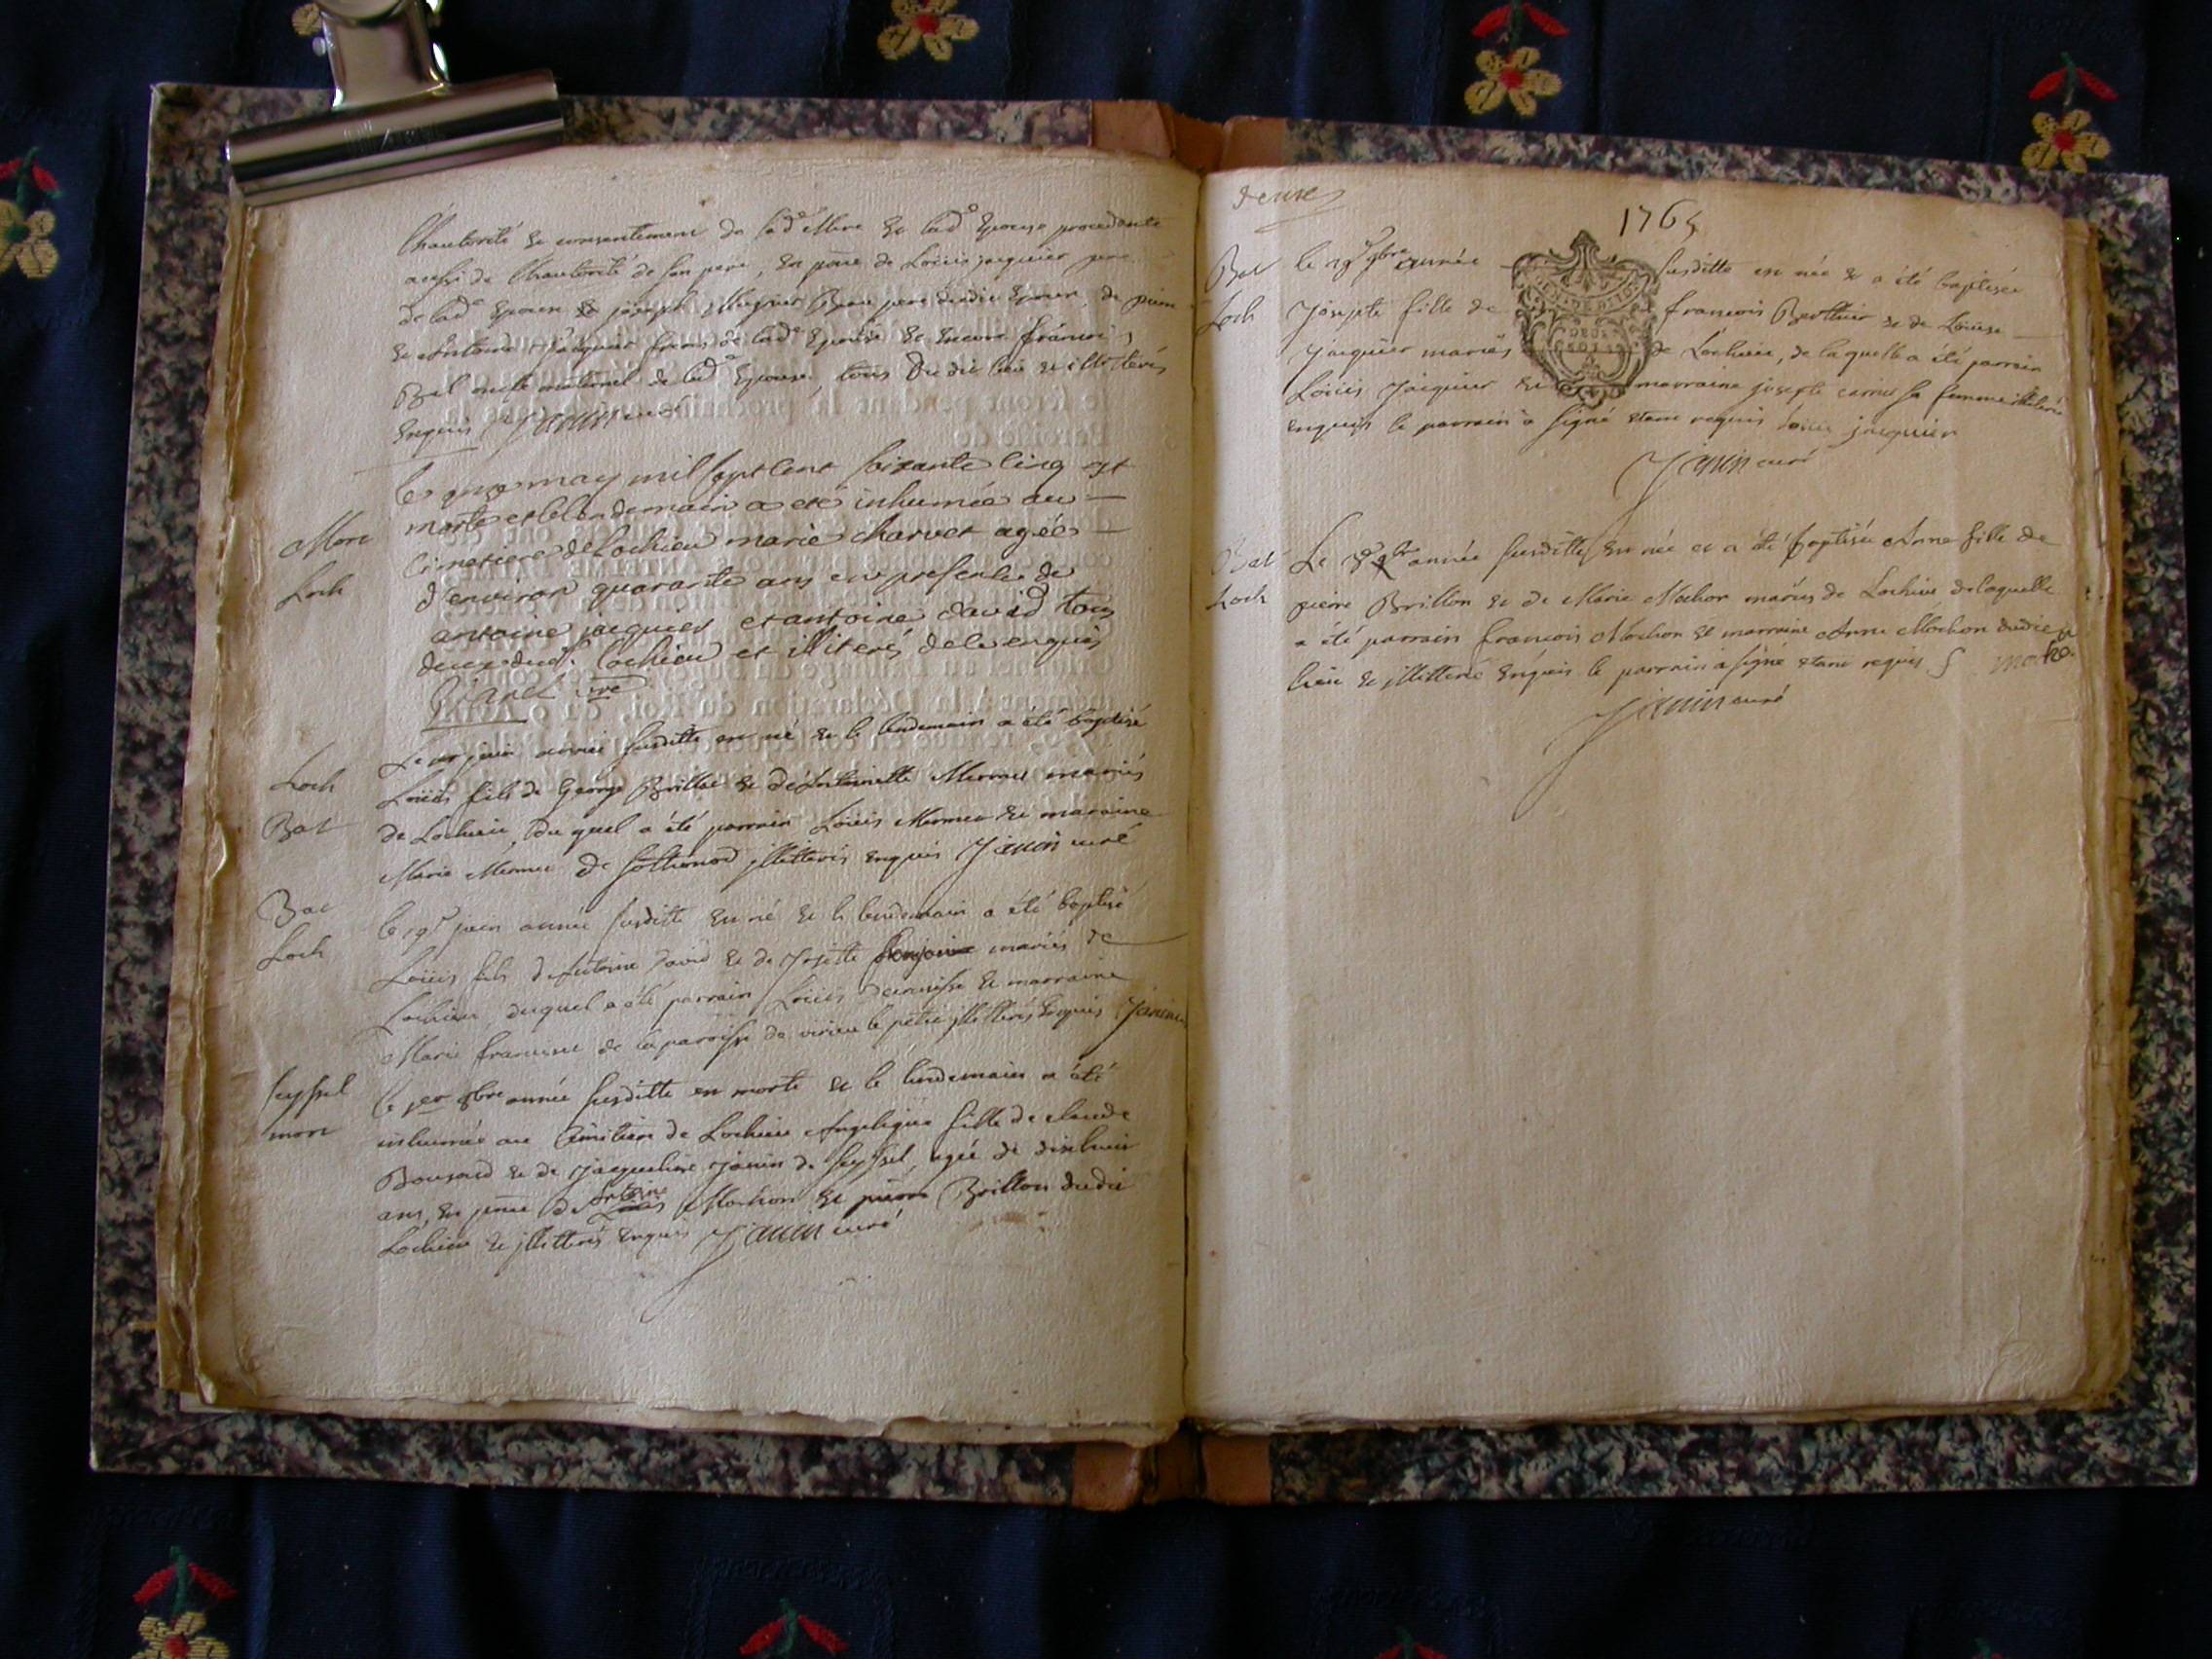 l'hautorité et consentement de sad^e Mere et lad^e Epouse procedante
aussi de l'hautorité de son pere, en pnce de Loüis jacquier pere
de lad^e Epouse joseph Beau pere dudit Epoux, de pierre
et Antoine jacquier freres de lad^e Epouse et encore francois
oncle maternel de lad^e Epouse, tous Dudit lieu et illitterés
Enquis Janin curé
Mort
Loch
le onze may mil sept cent soixante cinq est
morte et le lendemain a eté inhumée au
cimetiere de Lochieu marie charvet agée
d'environ quarante ans en presence de
antoine jacquier et antoine david tous
deux dud^t lochieu et illiterés de ce enquis
vre
Loch
Bat
juin année susditte est né et le lendemain a été baptisé
Loüis fils de George Brillon et d'Antoinette Mermet mariés
de Lochieu, du quel a été parrain Loüis Mermet et maraine
Marie Mermet de sothonod jllitteris enquis Janin curé
Bat
Loch
le 19^e juin année susditte est né et le lendemain a été baptisé
Loüis fils d'Antoine David et de Josette mariés de
Lochieu, duquel a été parrain Loüis et marraine
Marie de la paroisse de virieu le petit jllitterés Enquis Janin
seyssel
mort
le jer 8bre année susditte est morte et le lendemain a été
inhumée au Cimitiere de Lochieu Angelique fille de claude
et de Jacqueline Janin de seyssel, agée de dixhuit
ans, en pnce de Antoine Mochon et pierre Brillon dudit
Lochieu et jllitterés enquis Janin curé
deuxe
1765
Bat
Loch
le 19^e 9bre année susditte est née et a été baptisée
Josepte fille de francois Berthier et de Loüise
Jacquier mariés de Lochieu, de laquelle a été parrain
Loüis Jacquier et marraine josepte sa femme
enquis le parrain a signé etant requis loüis jacquier
Janin curé
Bat
Loch
Le année susditte est née et a été baptisée Anne fille de
pierre Brillon et de Marie Mochon mariés de Lochieu de laquelle
a été parrain francois Mochon et marraine Anne Mochon dudit
lieu et jllitterée enquis le parrain a signé etant requis f mochon
Janin curé